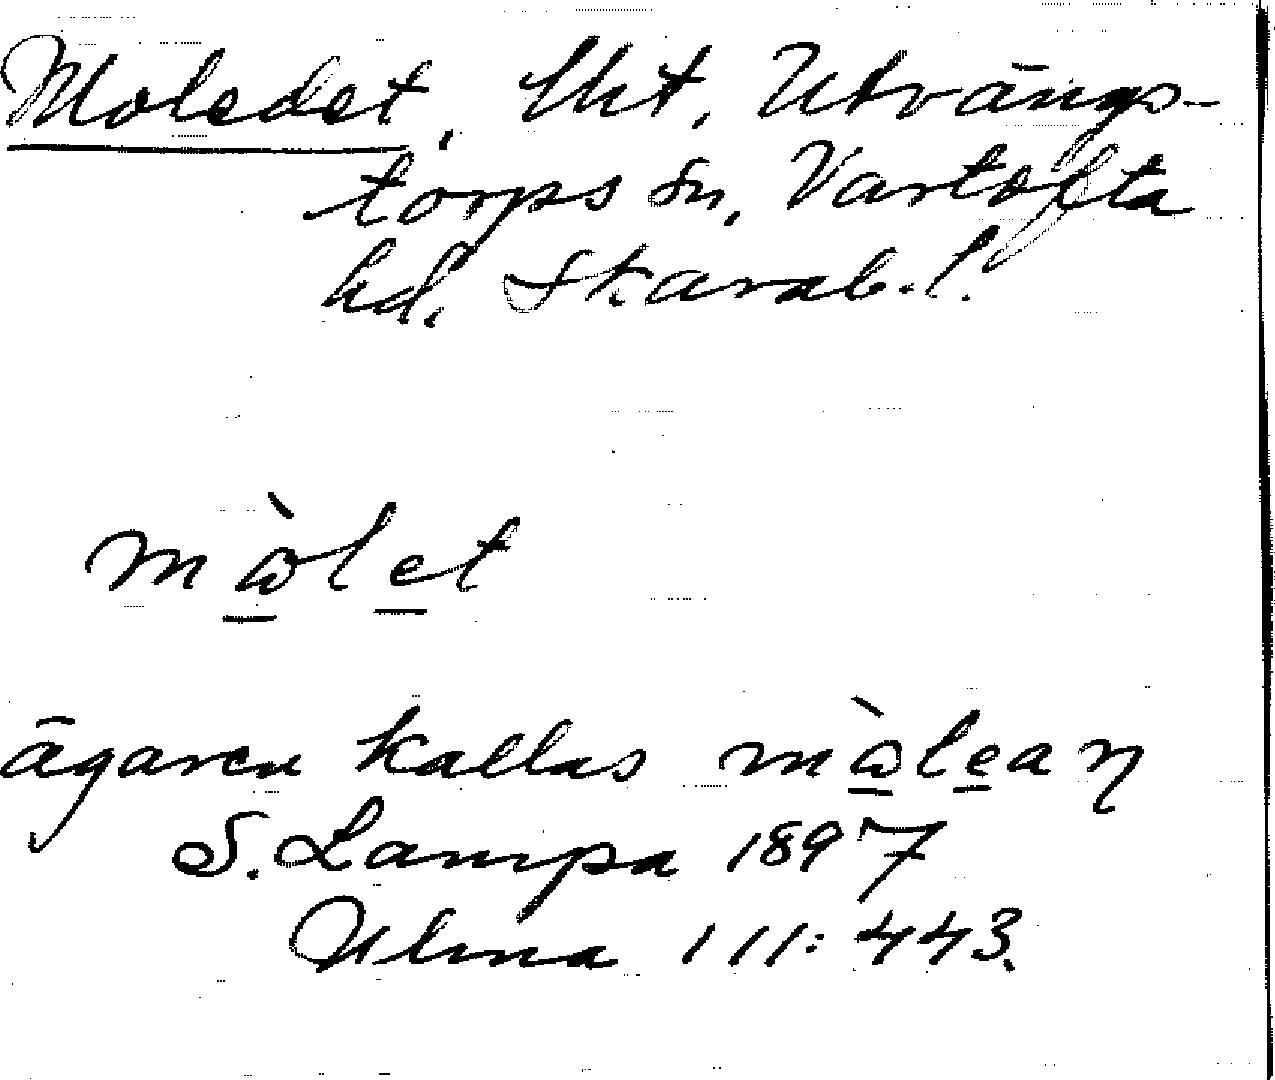 Moledet, lht, Utvängs-
torps sn, Vartofta
hd. Skarab. l.
mὼ̲le̲t
ägaren kallas mὼ̲le̲aη
S. Lampa 1897
Ulma 111:443.